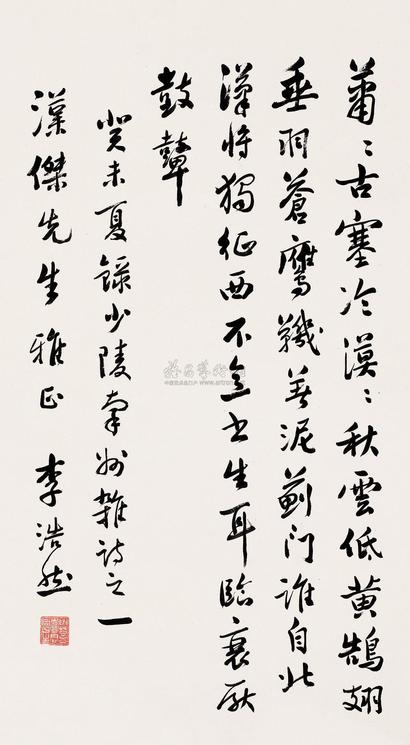 蕭〻古塞冷漠〻秋雲低黃鵠翅
垂羽蒼鷹饑啄泥薊門誰自北
漢將獨征西不意書生耳臨衰厭
鼓鼙
癸未夏錄少陵秦州雜詩之一
漢傑先生雅正 李浩然